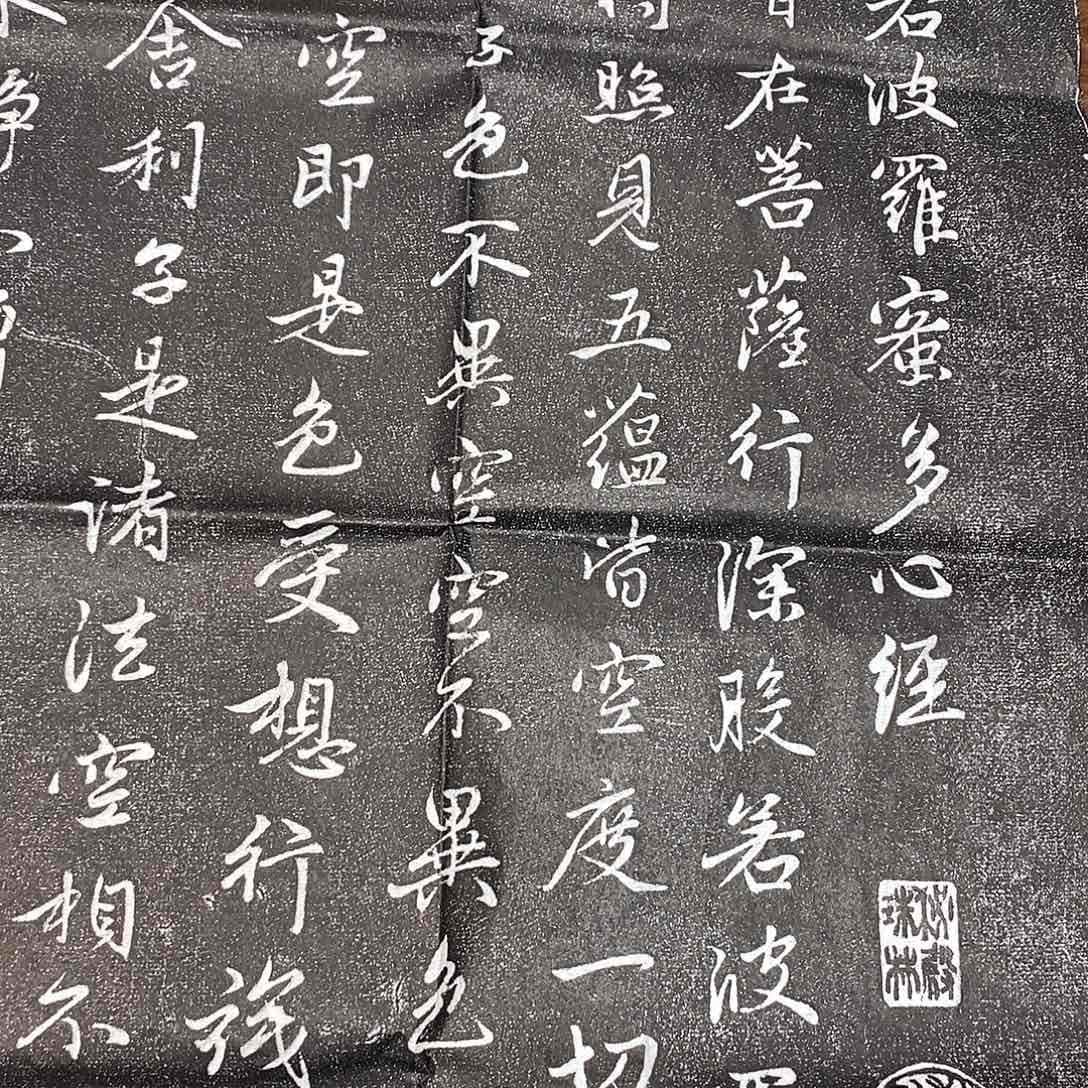 若波羅蜜多心経
在菩薩行深般若波
照見五蘊皆空度一切
子色不異空空不異色
空即是色受想行識
舍利子是諸法空相不
淨不